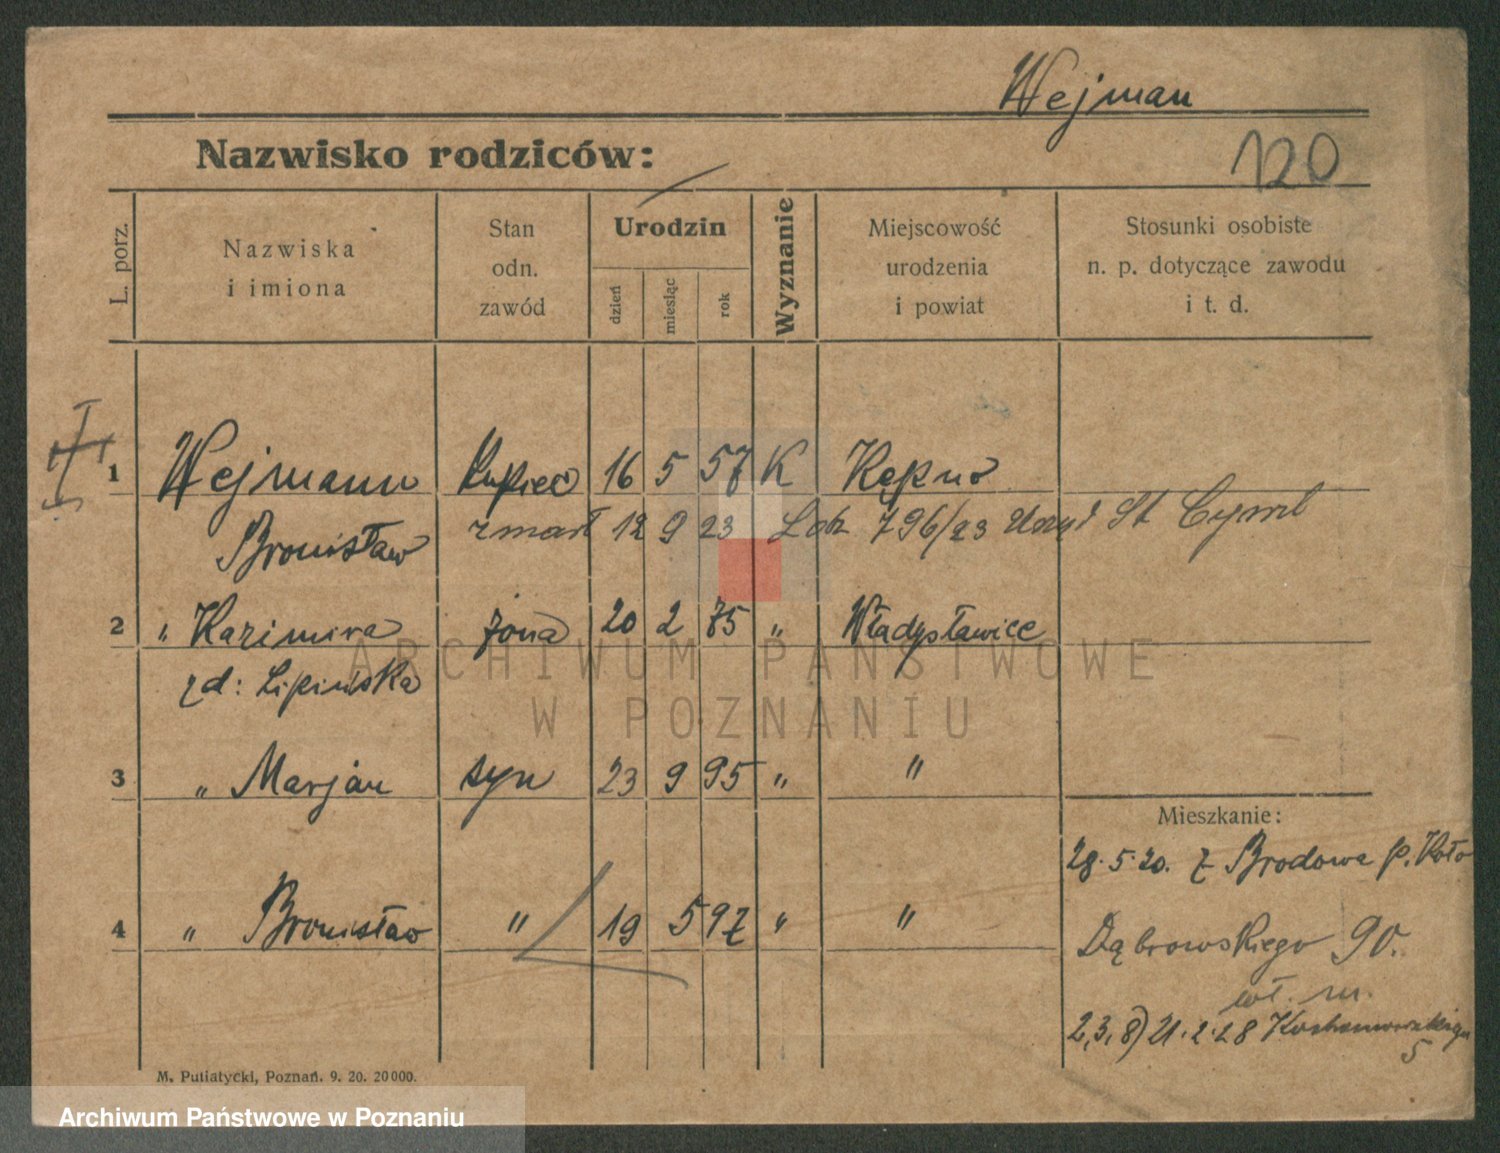 Wejman
Nazwisko rodziców:
120
L. porz.
Nazwiska
i imiona
Stan
odn.
zawód
Urodzin
dzień
miesiąc
rok
Wyznanie
Miejscowość
urodzenia
i powiat
Stosunki osobiste
n. p. dotyczące zawodu
i t. d.
1 Wejmann Kupiec 16 5 57 K Kępno
Bronisław zmarł 12 9 23 796/23 Urząd St Cywil
2 " Kazimira żona 20 2 75 " Władysławice
zd: Lipińska
ARCHIWUM PAŃSTWOWE
W POZNANIU
3 " Marjan syn 23 9 95 " "
Mieszkanie:
28.5.20. z Brodowa p. Koło
4 " Bronisław " 19 5 97 " "
Dąbrowskiego 90.
wł. m.
2,3,8) 21.2.28
5
M. Putiatycki, Poznań. 9. 20. 20000.
Archiwum Państwowe w Poznaniu